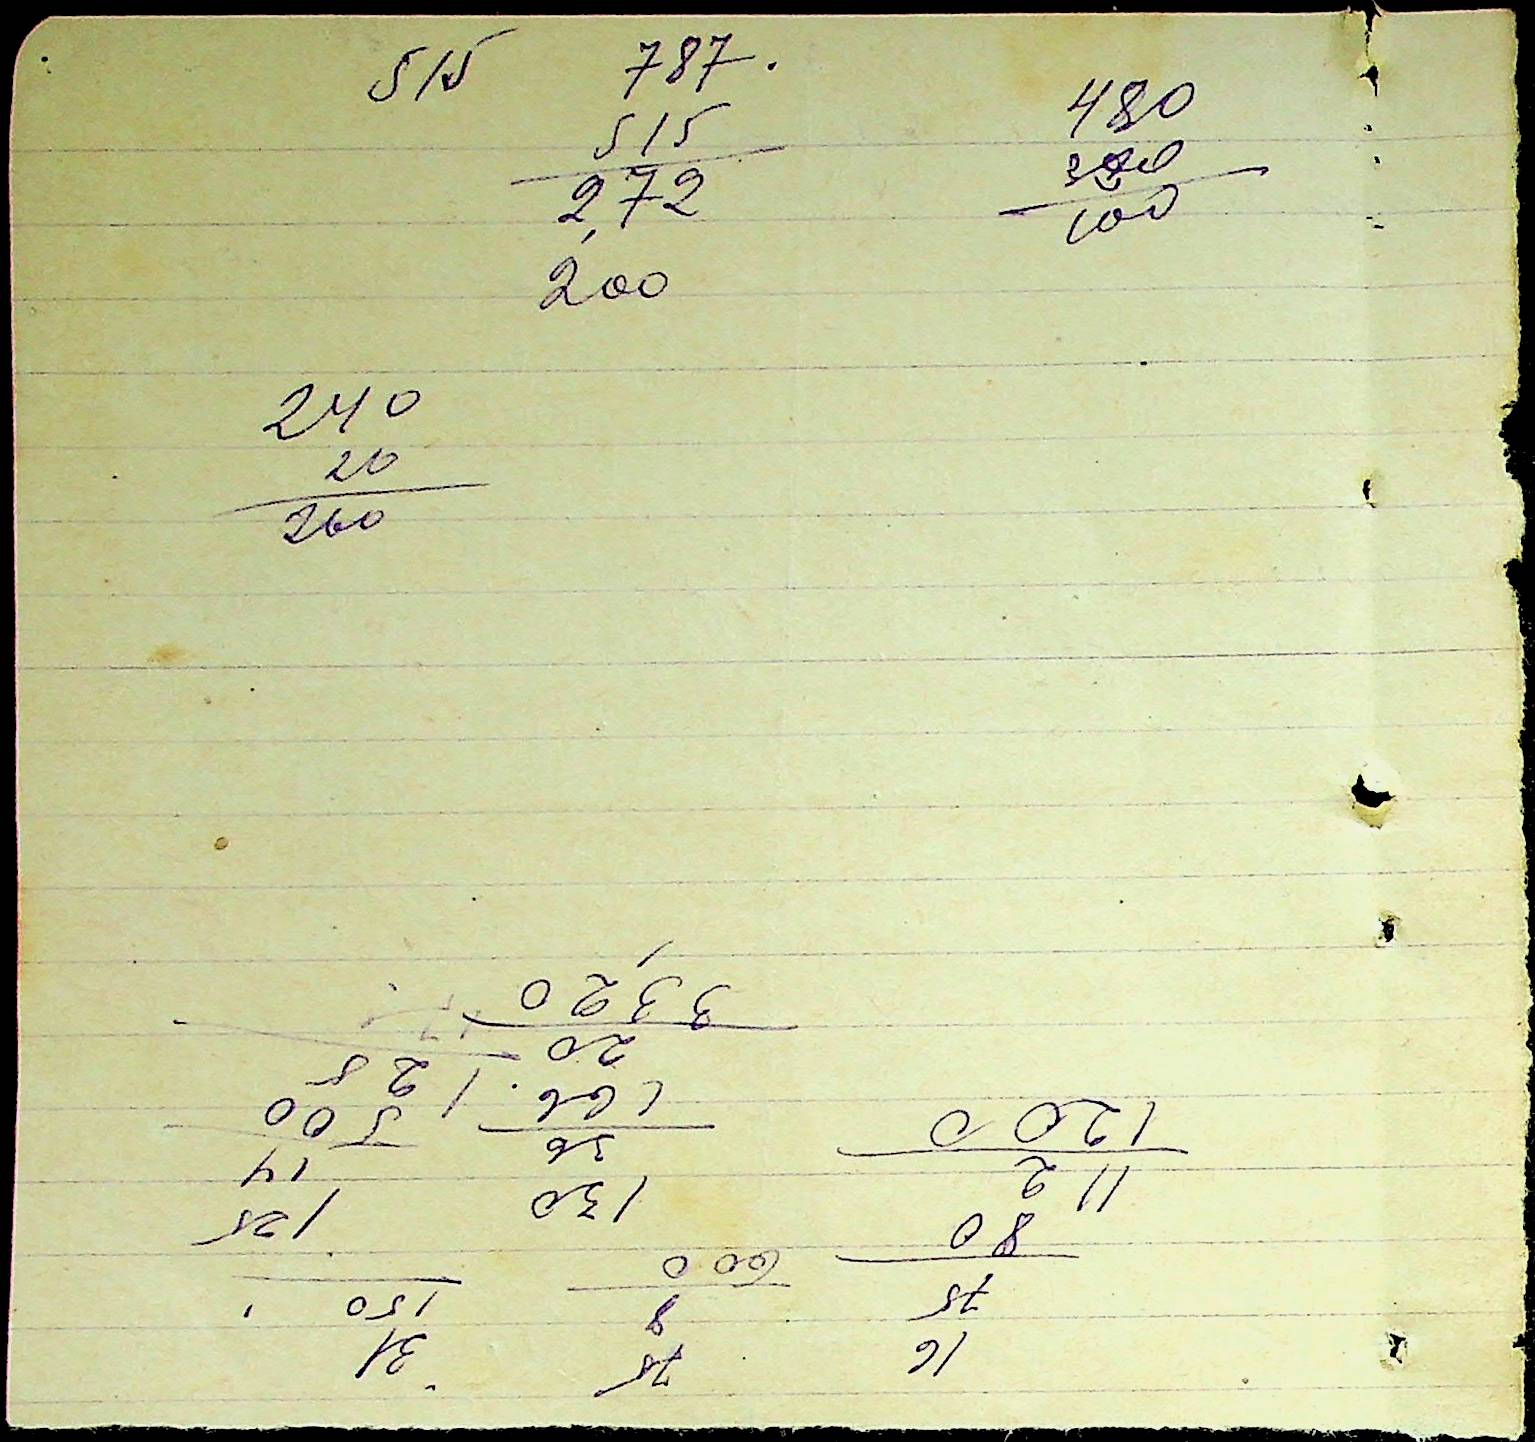 515 787.
515
272
200
480
100
240
20
260
16
75
80
112
1200
75
8
600
130
36
166
20
3320
31
150
125
14
500
125